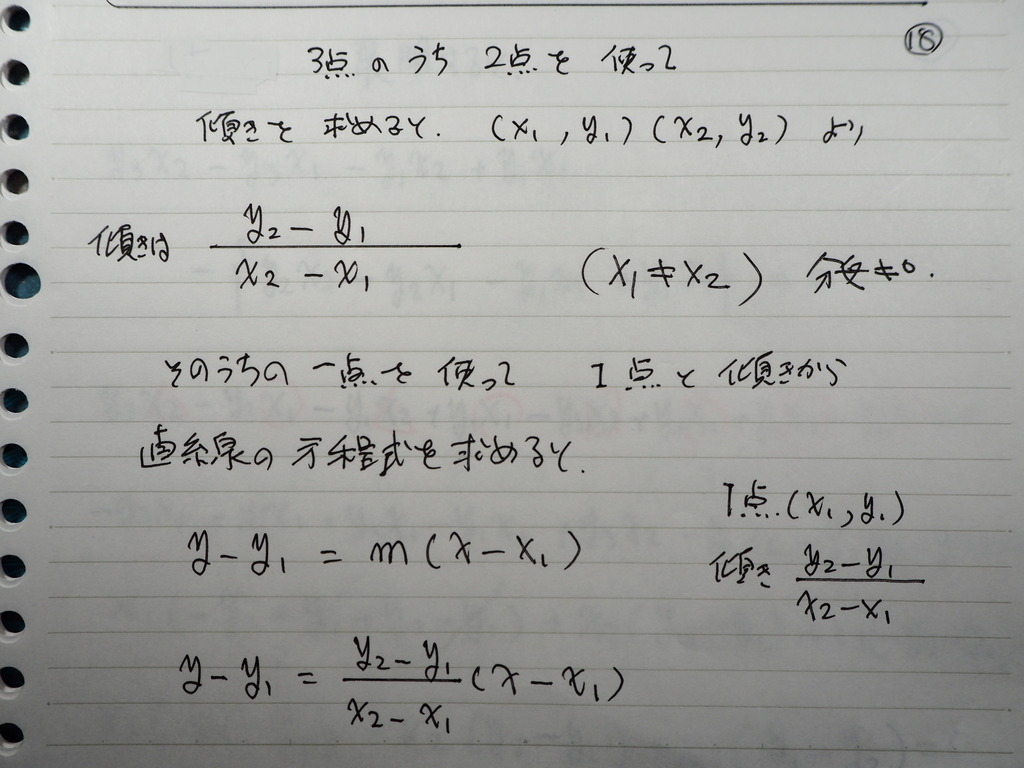 ⑱
3点のうち 2点を 使って
傾きを 求めると. (x₁, y₁) (x₂, y₂) より
傾きは (y₂ - y₁)/(x₂ - x₁) (x₁ ≠ x₂) 分母≠0.
そのうちの 一点を 使って 1点と 傾きから
直線の 方程式を 求めると.
1点.(x₁, y₁)
y - y₁ = m (x - x₁)
傾き (y₂ - y₁)/(x₂ - x₁)
y - y₁ = (y₂ - y₁)/(x₂ - x₁) (x - x₁)